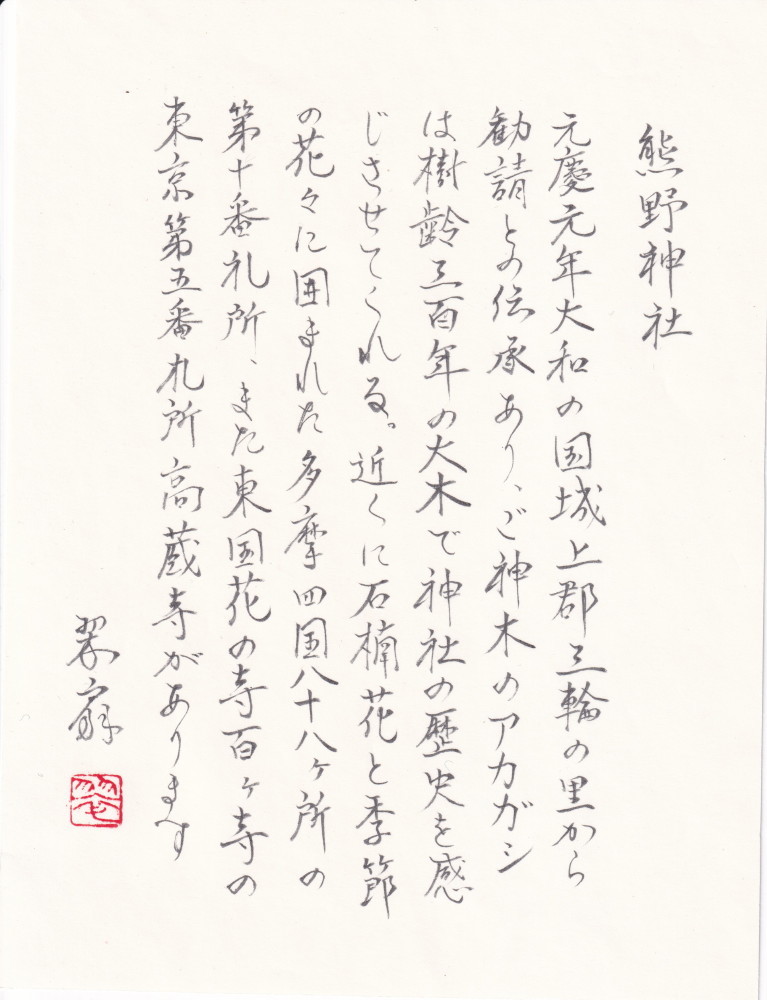 熊野神社
元慶元年大和の国城上郡三輪の里から
勧請との伝承あり、ご神木のアカガシ
は樹齢三百年の大木で神社の歴史を感
じさせてくれる。近くに石楠花と季節
の花々に囲まれた多摩四国八十八ヶ所の
第十番札所、また東国花の寺百ヶ寺の
東京第五番札所高蔵寺があります